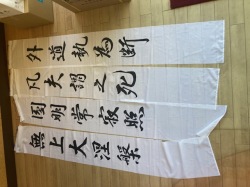 外道執為斷
凡夫謂之死
圓明常寂照
無上大涅槃